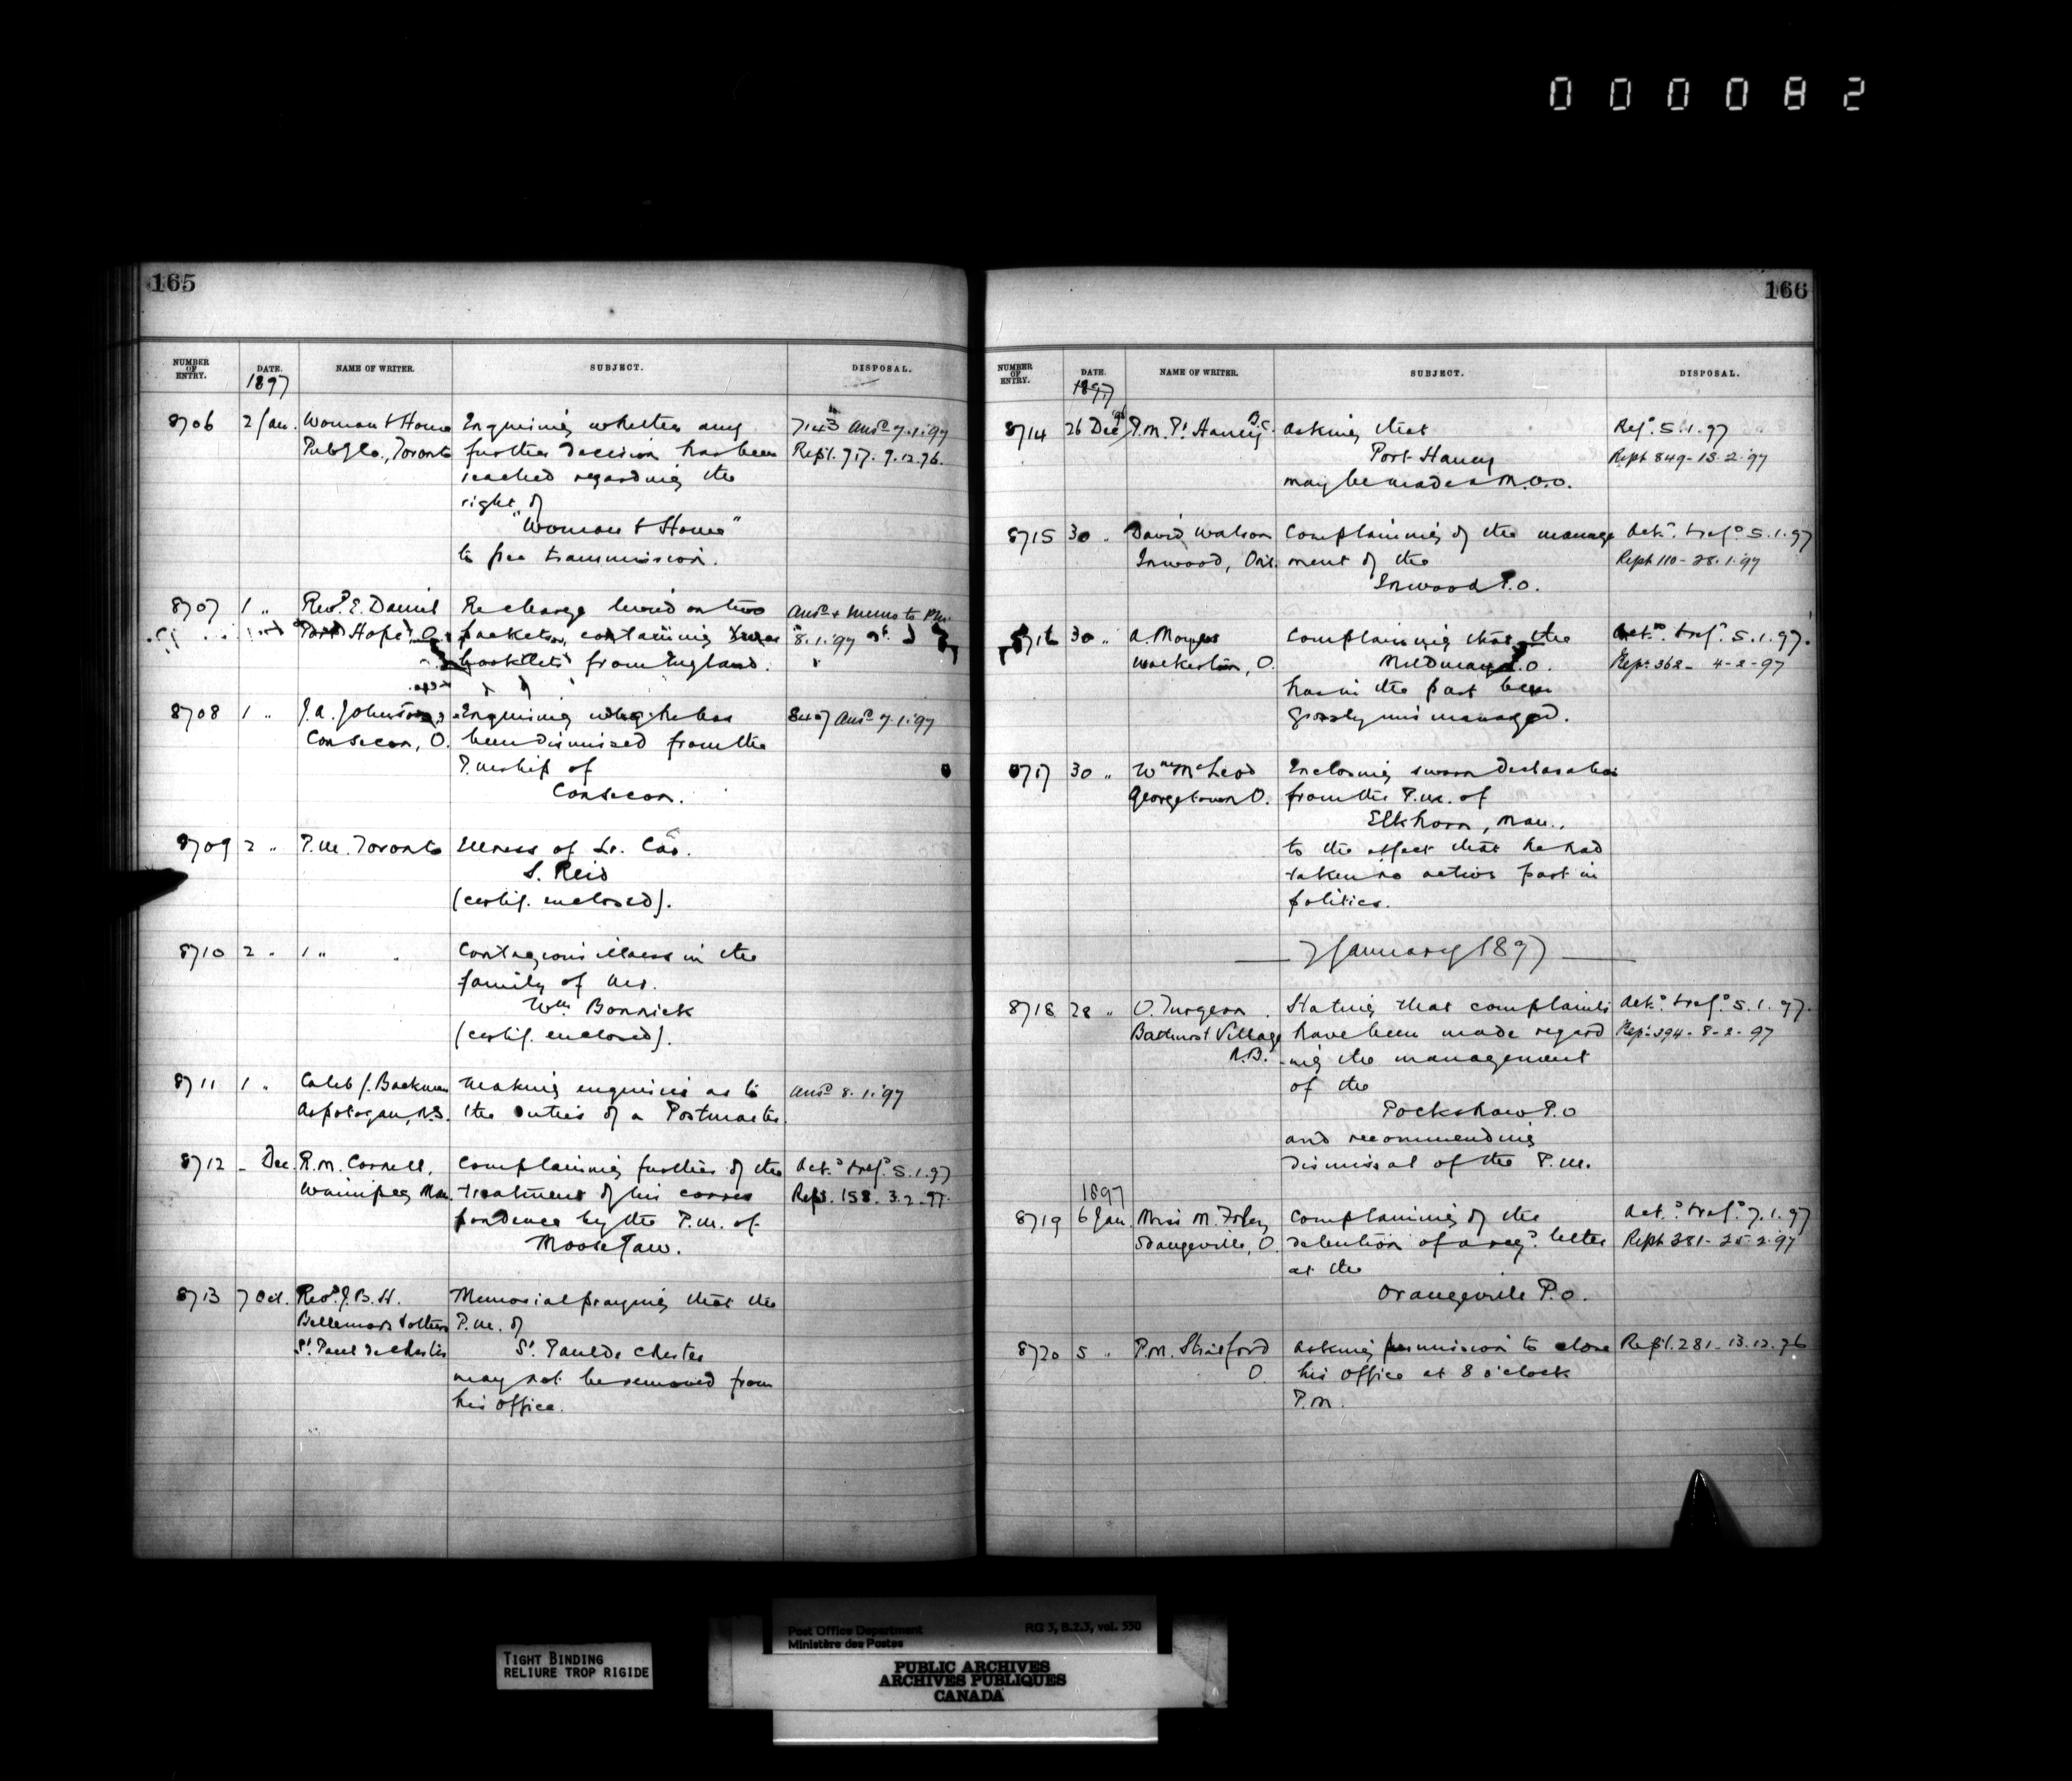 000082
165
NUMBER OF ENTRY. DATE. NAME OF WRITER. SUBJECT. DISPOSAL.
1897
8706 2 Jan. Woman & Home Enquiring whether any 7143 Ansd 7.1.'97
Pub'g Co., Toronto further decision has been Rept. 717. 9.12.96.
reached regarding the
right of
"Woman & Home"
to free transmission.
8707 1 " Revd. E. Daniel Re charge levied on two Ansd & memo to
Port Hope, O. packets, containing 8.1.'97
booklets from England.
8708 1 " J.A. Johnston, Enquiring why he has 8407 Ansd 7.1.'97
Consecon, O. been dismissed from the
P.mship of
Consecon.
8709 2 " P.M. Toronto Illness of Lr. Car.
S. Reid
(certif. enclosed).
8710 2 " " " Contagious illness in the
family of Mr.
Wm Bonnick
(certif. enclosed).
8711 1 " Caleb J. Backman Making enquiries as to Ansd 8.1.'97
Aspotogan, N.S. the duties of a Postmaster.
8712 _ Dec. R.M. Correll, Complaining further of the Ack.d & refd. 5.1.97
Winnipeg Man. treatment of his corres Rept. 158. 3.2.97.
pondence by the P.M. of
Moose Jaw.
8713 7 Oct. Revd. J.B.H. Memorial praying that the
Bellemare & others P.M. of
St. Paul de Chester St. Paul de Chester
may not be removed from
his office.
166
NUMBER OF ENTRY. DATE. NAME OF WRITER. SUBJECT. DISPOSAL.
1897
8714 26 Dec '96 P.M. Pt. Haney B.C. Asking that Refd. 5.1.97
Port Haney Rept 849-13.2.97
may be made a M.O.O.
8715 30 " David Watson Complaining of the manage Ackd. & refd 5.1.97
Inwood, Ont. ment of the Rept 110-28.1.97
Inwood P.O.
8716 30 " A. Complaining that the Ackd. & refd. 5.1.97.
Walkerton, O. Mildmay P.O. Rept 362- 4-2-97
has in the past been
grossly mismanaged.
8717 30 " Wm McLeod Enclosing sworn declaration
Georgetown O. from the P.M. of
Elkhorn, Man.,
to the effect that he had
taken no active part in
politics.
7 January 1897
8718 28 " O. Turgeon Stating that complaints Ackd. & refd 5.1.97.
Bathurst Village have been made regard Rept 394-8-2-97
N.B. -ing the management
of the
Pockshaw P.O
and recommending
dismissal of the P.M.
1897
8719 6 Jan. Miss M. Foley Complaining of the Ackd. & refd. 7.1.97
Orangeville, O. detention of a regd. letter Rept 381-25-2-97
at the
Orangeville P.O.
8720 5 " P.M. Stratford Asking permission to close Rept. 281-13.12.96
O. his office at 8 o'clock
P.M.
TIGHT BINDING
RELIURE TROP RIGIDE
Post Office Department RG 3, B.2.3, vol. 550
Ministère des Postes
PUBLIC ARCHIVES
ARCHIVES PUBLIQUES
CANADA